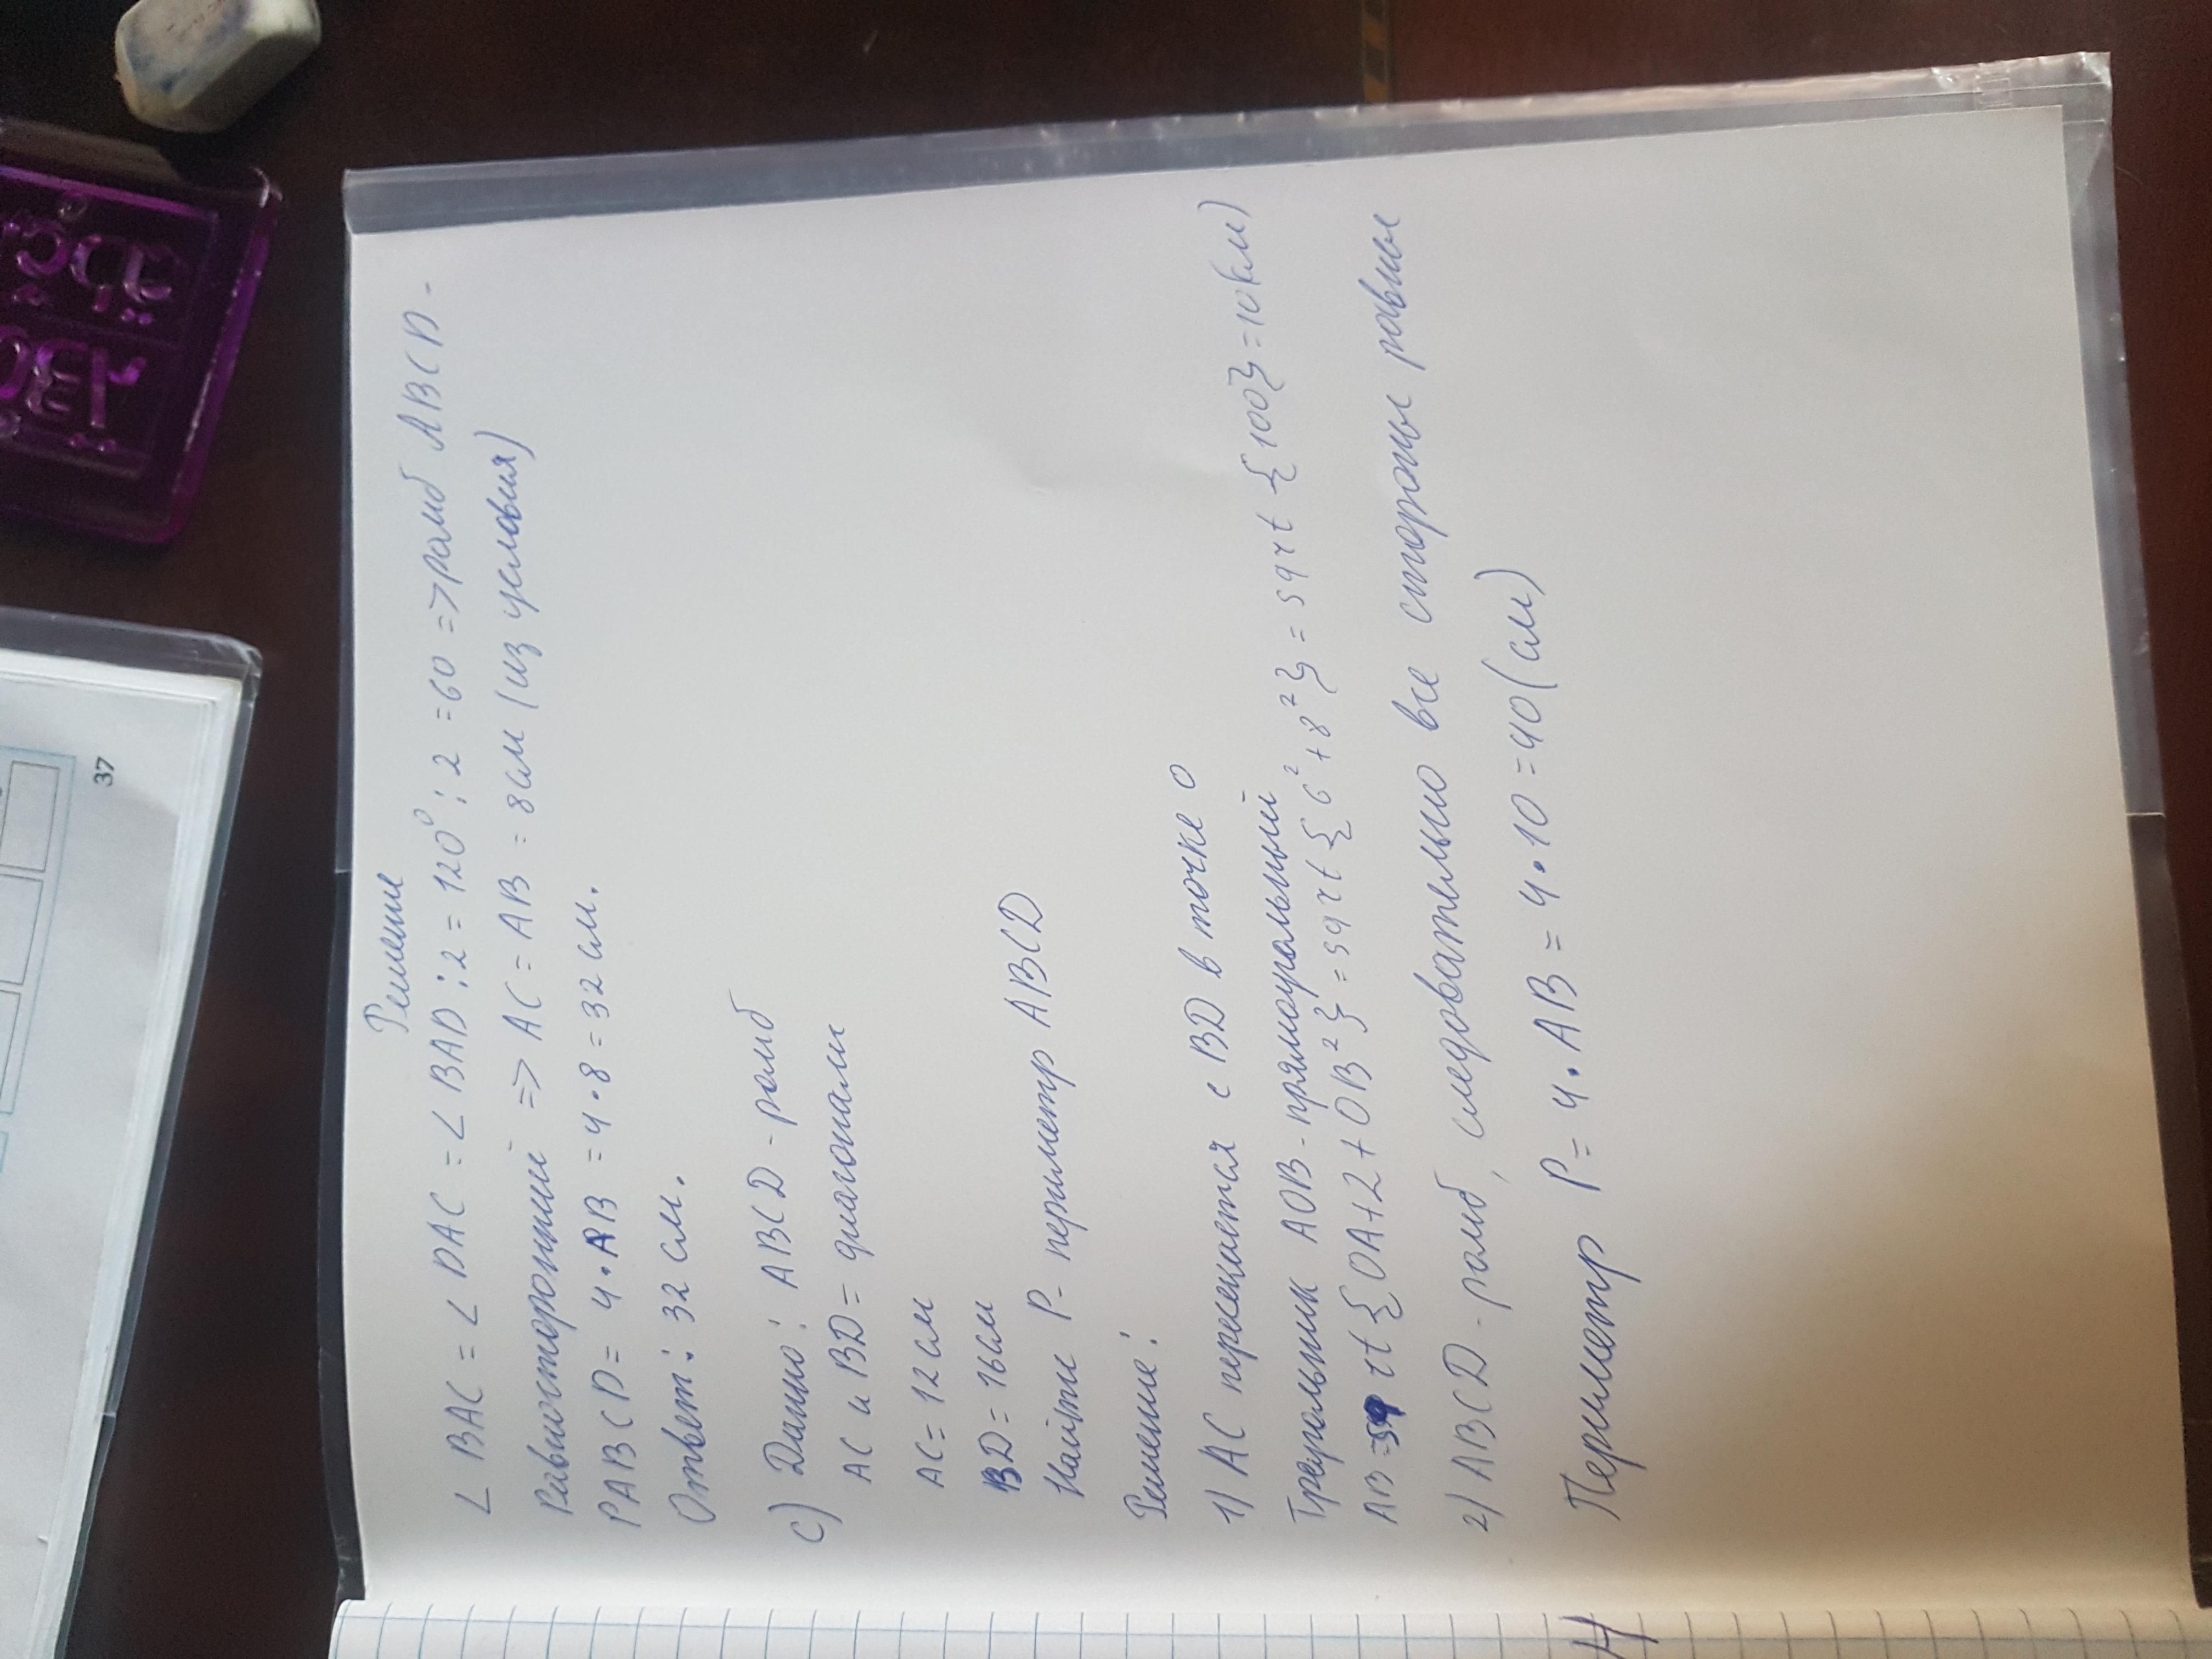 Решение
∠ BAC = ∠ DAC = ∠ BAD : 2 = 120⁰ : 2 = 60 => ромб ABCD -
Равносторонний => AC = AB = 8 см (из условия)
PABCD = 4 • AB = 4 • 8 = 32 см.
Ответ: 32 см.
c) Дано: ABCD - ромб
AC и BD = диагонали
AC = 12 см
BD = 16 см
Найти P - периметр ABCD
Решение:
1) AC пересекается с BD в точке O
Треугольник AOB - прямоугольный
AB = sqrt {OA+2+OB²} = sqrt {6²+8²} = sqrt {100} = 10(см)
2) ABCD - ромб, следовательно все стороны равны
Периметр P = 4 • AB = 4 • 10 = 40 (см)
37